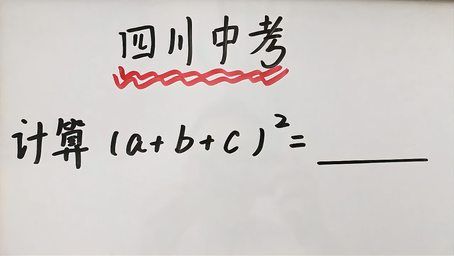 四川中考
计算 (a+b+c)²=______